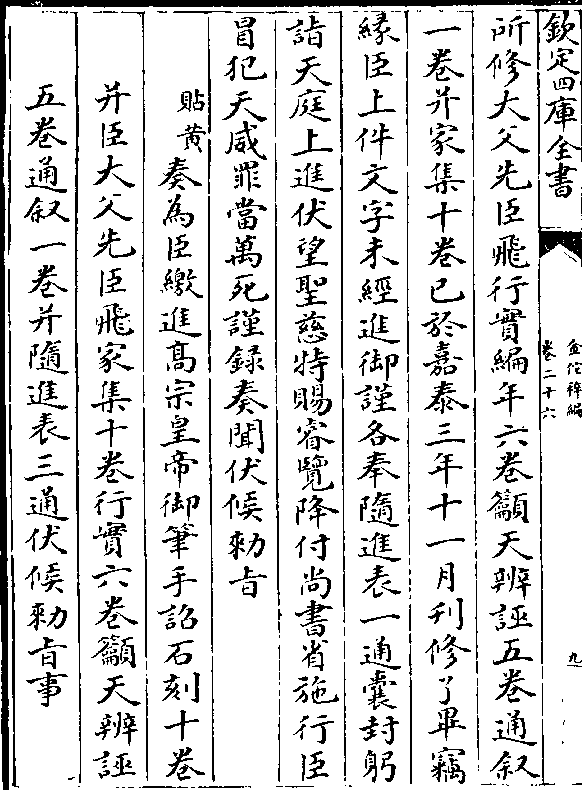 欽定四庫全書
金佗稡編
卷二十六
九
所修大父先臣飛行實編年六卷籲天辨誣五卷通叙
一卷并家集十卷已於嘉泰三年十一月刋修了畢竊
縁臣上件文字未經進御謹各奉隨進表一通囊封躬
詣天庭上進伏望聖慈特賜睿覽降付尚書省施行臣
冒犯天威罪當萬死謹録奏聞伏候勅㫖
貼黄
奏為臣繳進髙宗皇帝御筆手詔石刻十卷
并臣大父先臣飛家集十卷行實六卷籲天辨誣
五卷通叙一卷并隨進表三通伏候勅㫖事